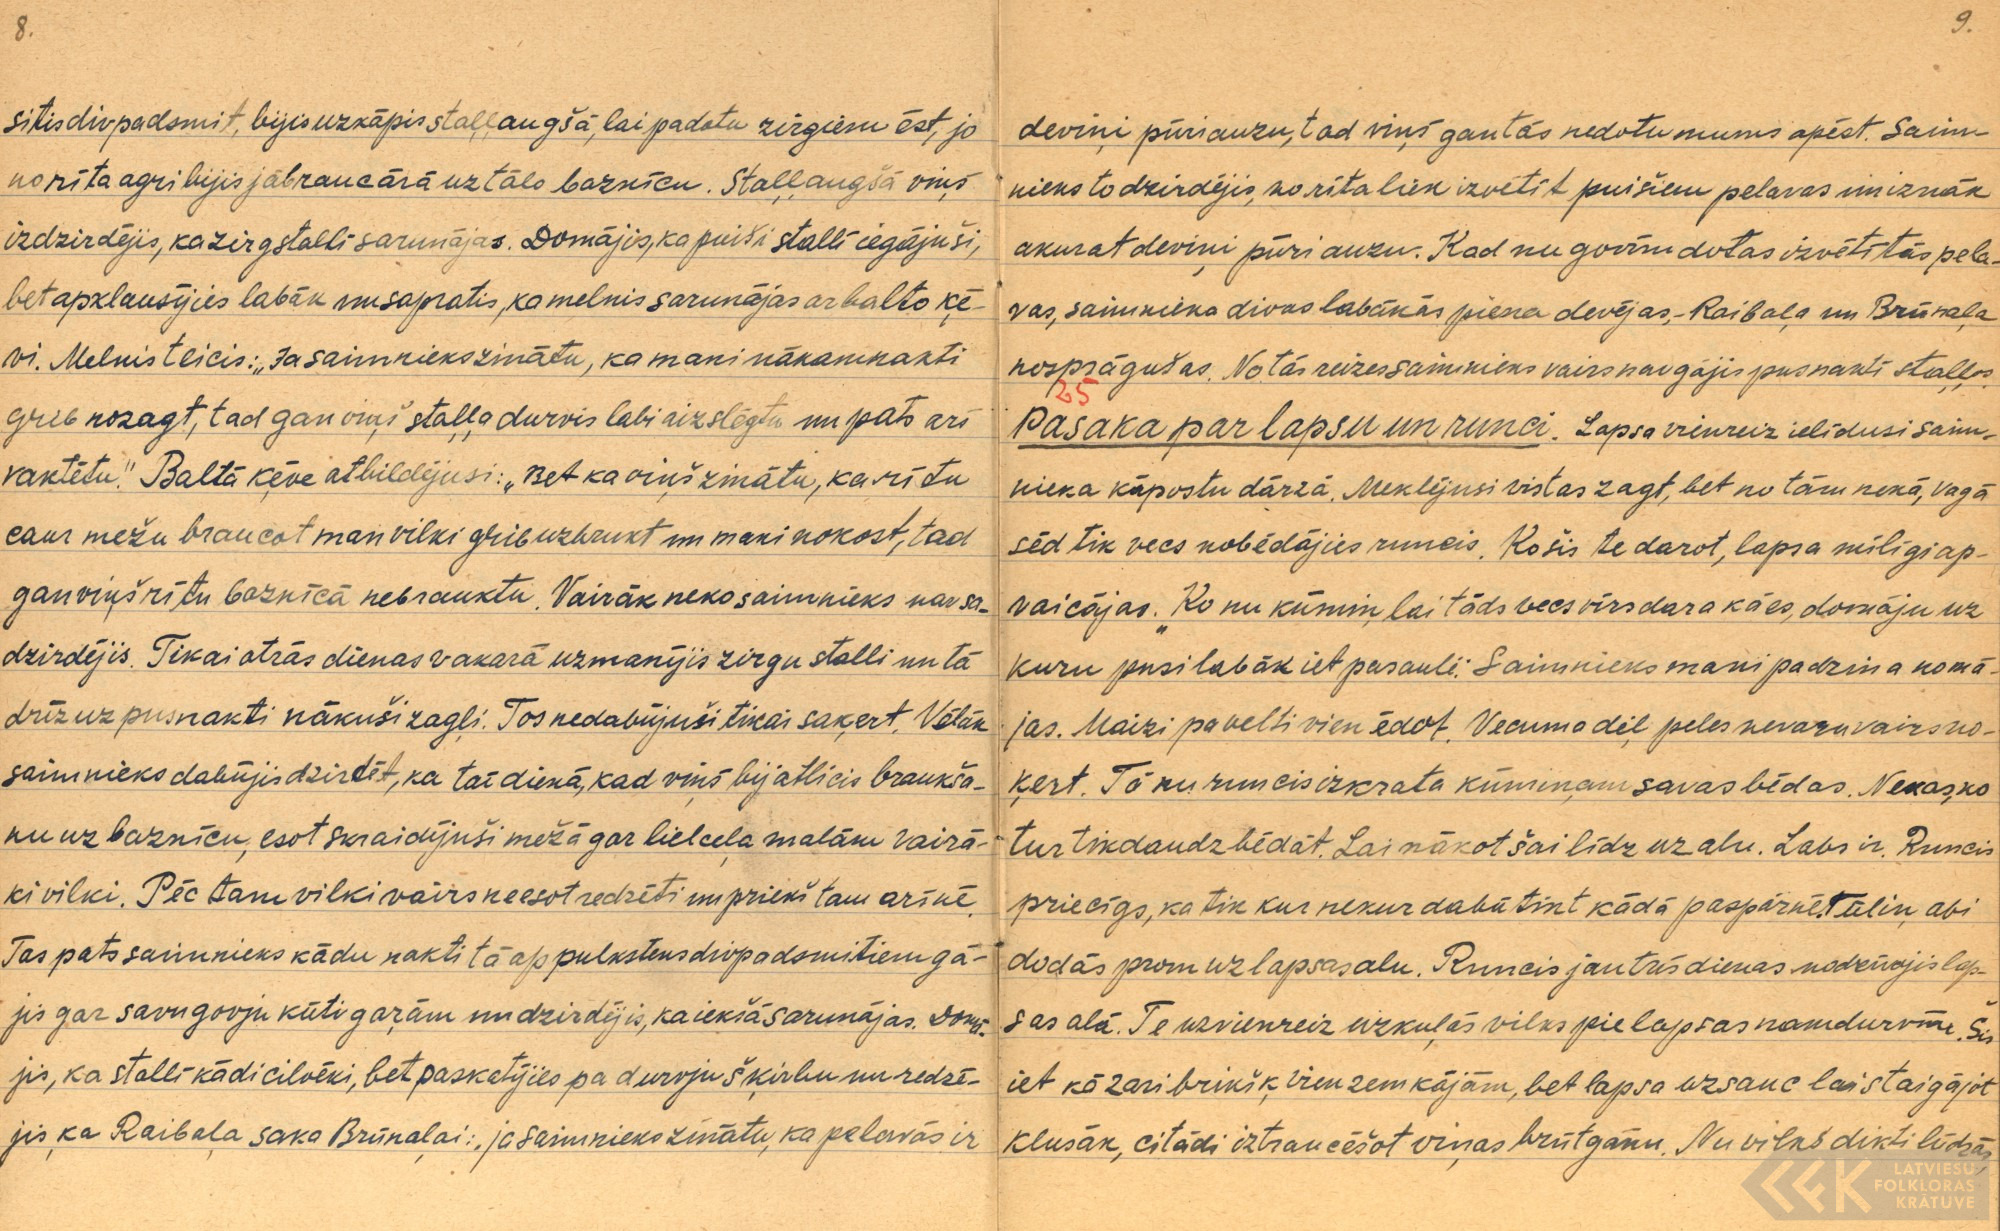 8.
sitis divpadsmit, bijis uzkāpis staļļaugšā, lai padotu zirgiem ēst, jo
no rīta agri bijis jābrauc ārā uz tālo baznīcu. Staļļaugšā viņš
izdzirdējis, ka zirgstallī sarunājas. Domājis, ka puiši stallī iegājuši,
bet apklausījies labāk un sapratis, ka melnis sarunājas ar balto ķē-
vi. Melnis teicis: „Ja saimnieks zinātu, ka mani nākamnakti
grib nozagt, tad gan viņš staļļa durvis labi aizslēgtu un pats arī
vaktētu." Baltā ķēve atbildējusi: „Bet ka viņš zinātu, ka rītu
caur mežu braucot man vilki grib uzbrukt un mani nokost, tad
gan viņš rītu baznīcā nebrauktu. Vairāk neko saimnieks nav sa-
dzirdējis. Tikai otrās dienas vakarā uzmanījis zirgu stalli un tā
drīz uz pusnakti nākuši zagļi. Tos nedabūjuši tikai saķert. Vēlāk
saimnieks dabūjis dzirdēt, ka tai dienā, kad viņš bij atlicis braukša-
nu uz baznīcu, esot skraidījuši mežā gar lielceļa malām vairā-
ki vilki. Pēc tam vilki vairs neesot redzēti un priekš tam arī nē.
Tas pats saimnieks kādu nakti tā ap pulkstens divpadsmitiem gā-
jis gar savu govju kūti gaŗām un dzirdējis, ka iekšā sarunājas. Domā-
jis, ka stallī kādi cilvēki, bet paskatījies pa durvju šķirbu un redzē-
jis, ka Raibaļa saka Brūnaļai: „ja saimnieks zinātu, ka pelavās ir
9.
deviņi pūri auzu, tad viņš gan tās nedotu mums apēst. Saim-
nieks to dzirdējis, no rīta liek izvētīt puišiem pelavas un iznāk
akurat deviņi pūri auzu. Kad nu govīm dotas izvētītās pela-
vas, saimnieka divas labākās piena devējas, - Raibaļa un Brūnaļa
nosprāgušas. No tās reizes saimnieks vairs nav gājis pusnaktī staļļos.
25
Pasaka par lapsu un runci. Lapsa vienreiz ielīdusi saim-
nieka kāpostu dārzā. Meklējusi vistas zagt, bet no tām nekā, vagā
sēd tik vecs nobēdājies runcis. Ko šis te darot, lapsa mīlīgi ap-
vaicājas. „Ko nu kūmiņ, lai tāds vecs vīrs dara kā es, domāju uz
kuru pusi labāk iet pasaulē. Saimnieks mani padzina no mā-
jas. Maizi pa velti vien ēdot. Vecuma dēļ peles nevaru vairs no-
ķert. Tā nu runcis izkrata kūmiņam savas bēdas. Nekas, ko
tur tik daudz bēdāt. Lai nākot šai līdz uz alu. Labs ir. Runcis
priecīgs, ka tik kur nekur dabū tikt kādā paspārnē. Tūliņ abi
dodās prom uz lapsas alu. Runcis jau trīs dienas nodzīvojis lap-
sas alā. Te uz vienreiz uzkuļās vilks pie lapsas namdurvīm. Šis
iet kā zari brikšķ vien zem kājām, bet lapsa uzsauc lai staigājot
klusāk, citādi iztraucēšot viņas brūtgānu. Nu vilks dikti lūdzās,
LATVIEŠU
FOLKLORAS
KRĀTUVE